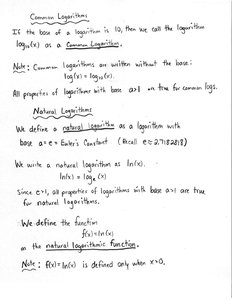 Common Logarithms
If the base of a logarithm is 10, then we call the logarithm
log₁₀(x) as a Common Logarithm.
Note: Common logarithms are written without the base:
log(x) = log₁₀(x).
All properties of logarithms with base a>1 are true for common logs.
Natural Logarithms
We define a natural logarithm as a logarithm with
base a = e = Euler's Constant (Recall e≈2.7182818)
We write a natural logarithm as ln(x).
ln(x) = logₑ(x)
Since e>1, all properties of logarithms with base a>1 are true
for natural logarithms.
We define the function
f(x) = ln(x)
as the natural logarithmic function.
Note: f(x) = ln(x) is defined only when x>0.